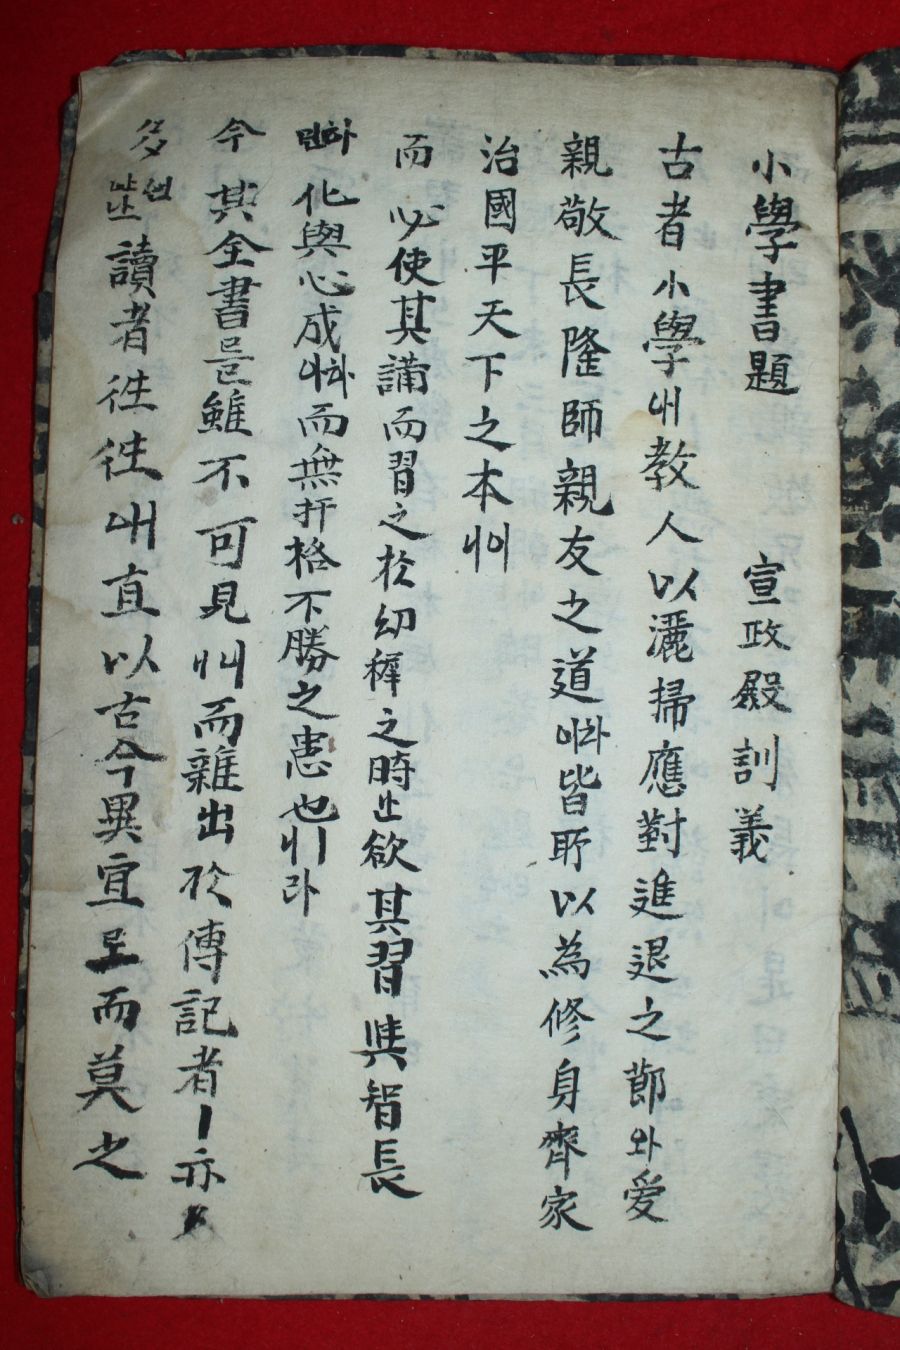 小學書題 宣政殿訓義
古者小學에教人以灑掃應對進退之節와愛
親敬長隆師親友之道皆所以為修身齊家
治國平天下之本
而必使其講而習之於幼穉之時欲其習與智長
化與心成而無扞格不勝之患也니라
今其全書를雖不可見而雜出於傳記者ㅣ亦
多讀者徃徃애直以古今異宜로而莫之